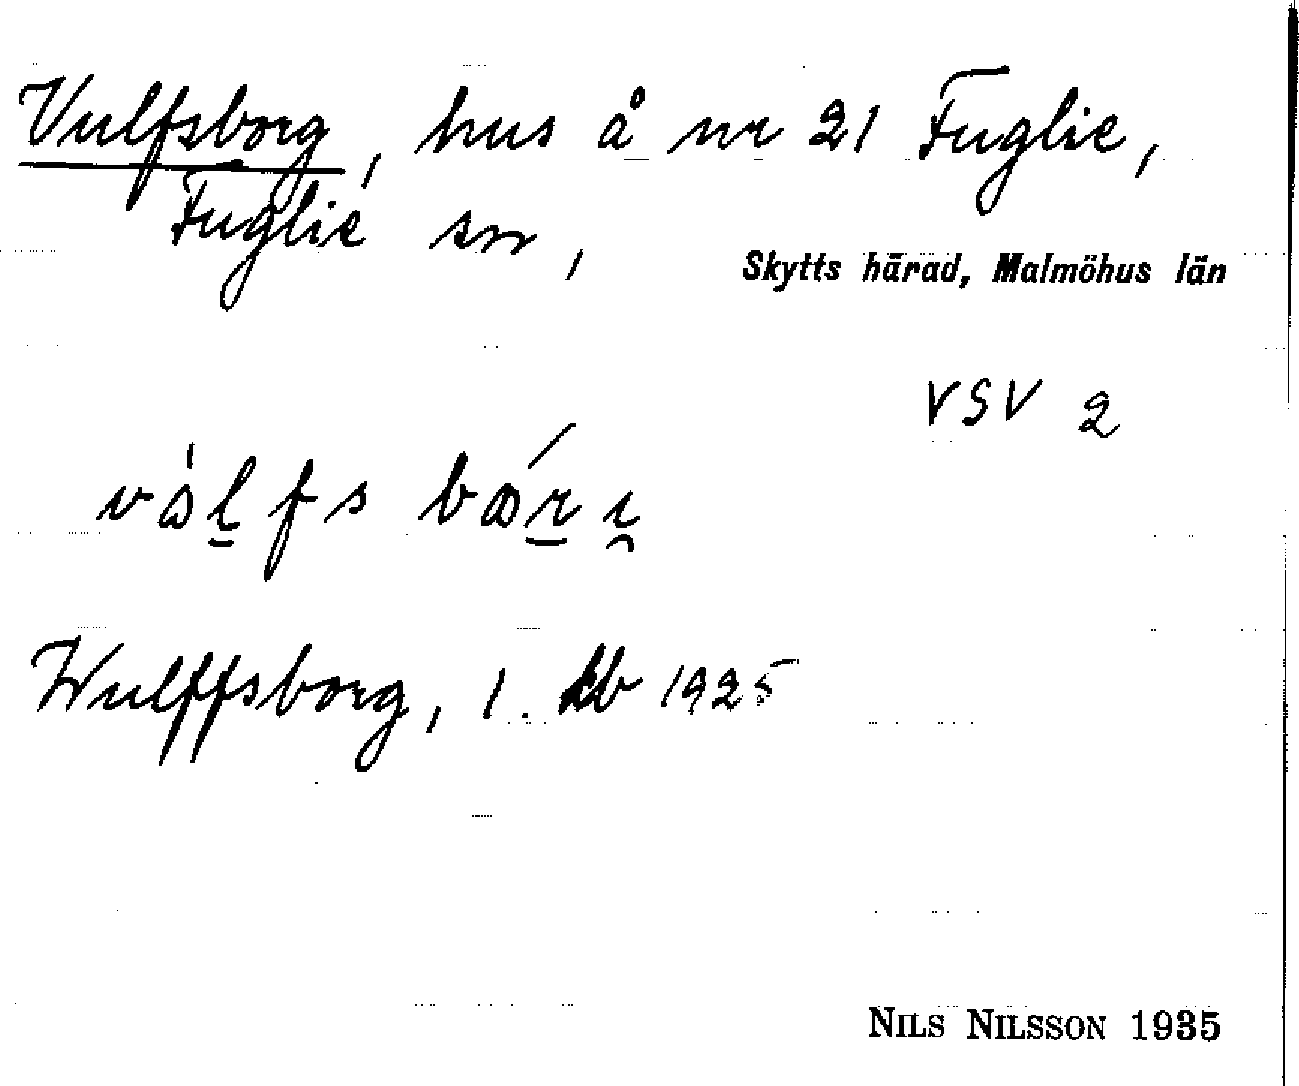 Vulfsborg, hus å nr 21 Fuglie,
Fuglie sn,
Skytts härad, Malmöhus län
VSV 2
Wulffsborg, 1. kb 1925
NILS NILSSON 1935